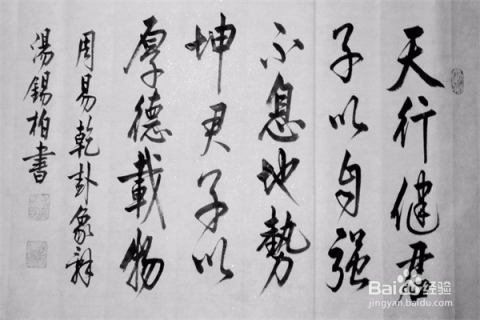 天行健君
子以自强
不息地勢
坤君子以
厚德載物
周易乾卦象辞
湯錫柏書
Baidu 经验
jingyan.baidu.com